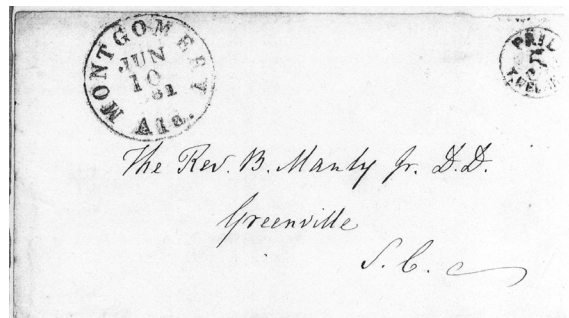 MONTGOMERY Ala.
JUN
10
PAID
5
The Rev. B. Manly Jr. D.D.
Greenville
S. C.